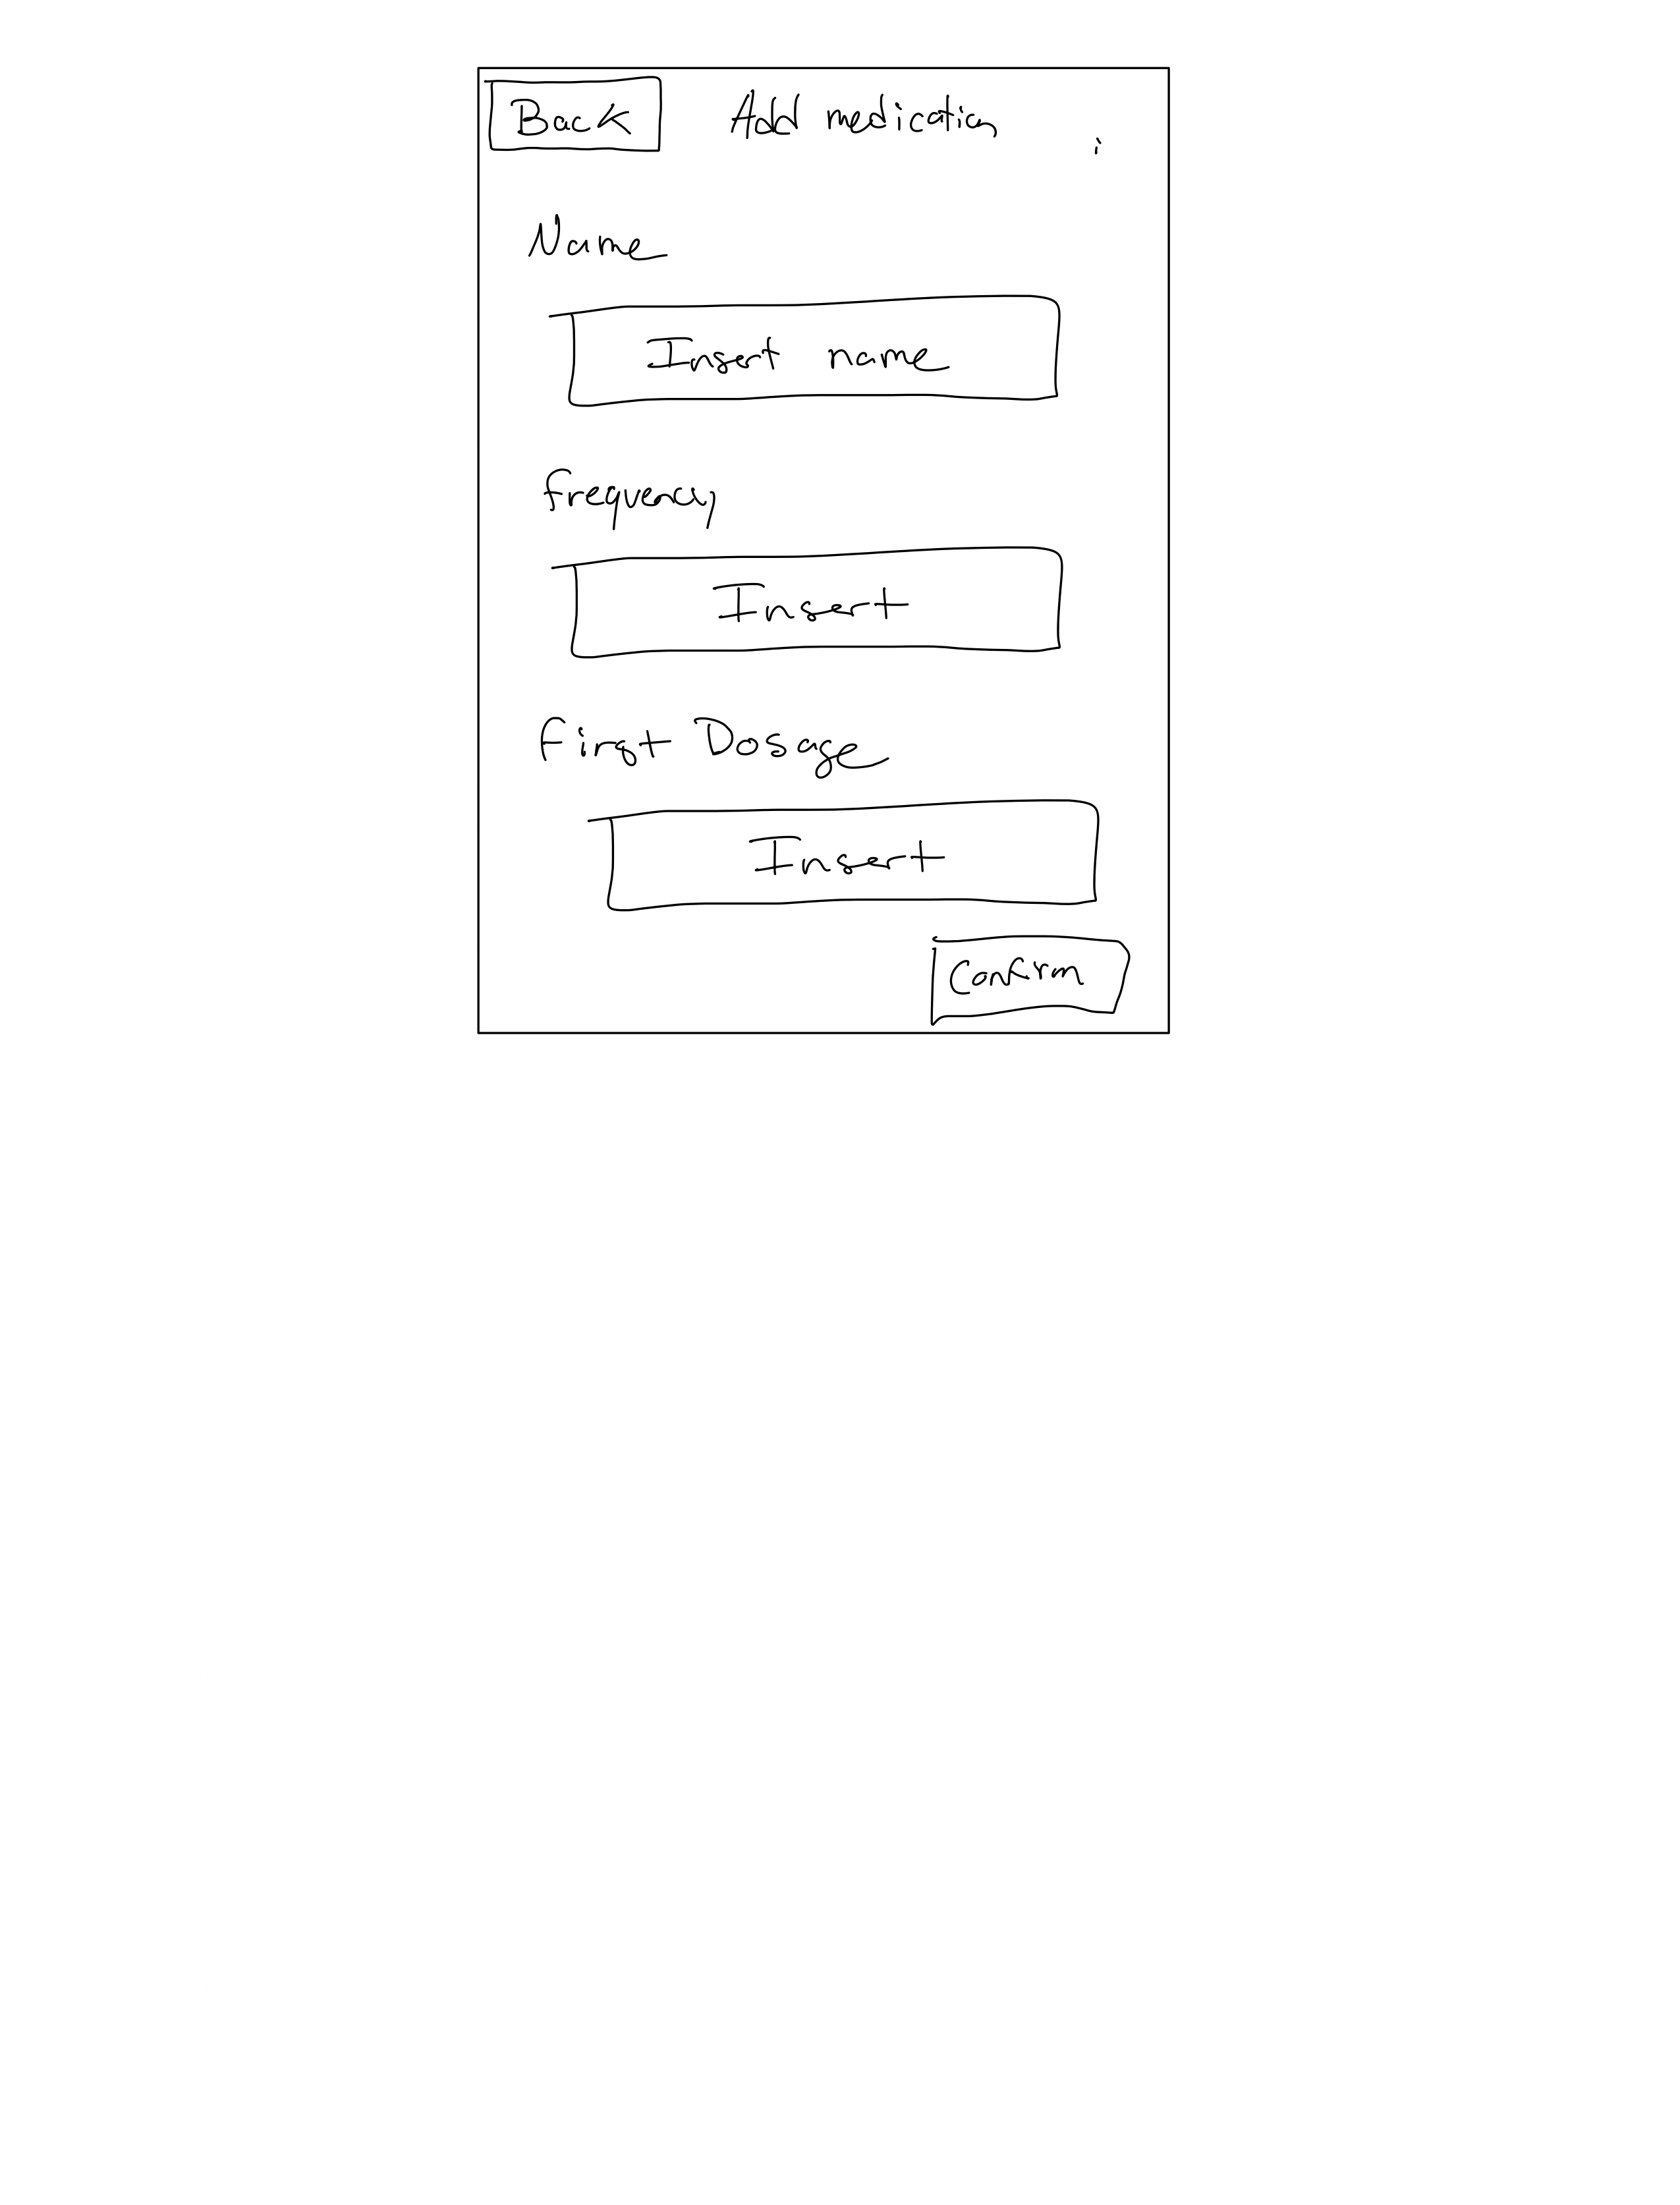 Back Add medication
Name
Insert name
frequency
Insert
First Dosage
Insert
Confirm